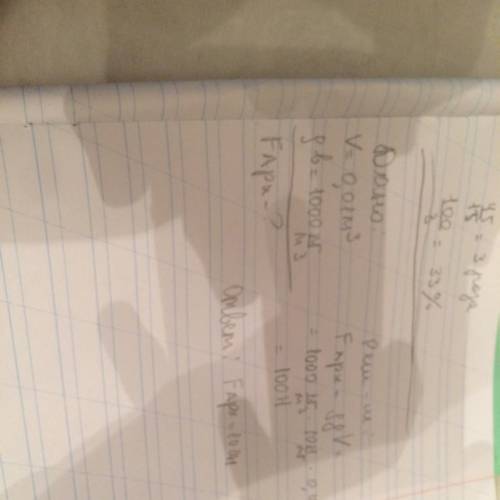 45/15 = 3 раза
100/3 = 33%
Дано:
V = 0,01 м³
ρв = 1000 кг/м³
Fарх - ?
Реш-ие:
Fарх = ρgV =
= 1000 кг/м³ · 10 Н/кг · 0,
= 100Н
Ответ: Fарх = 100Н